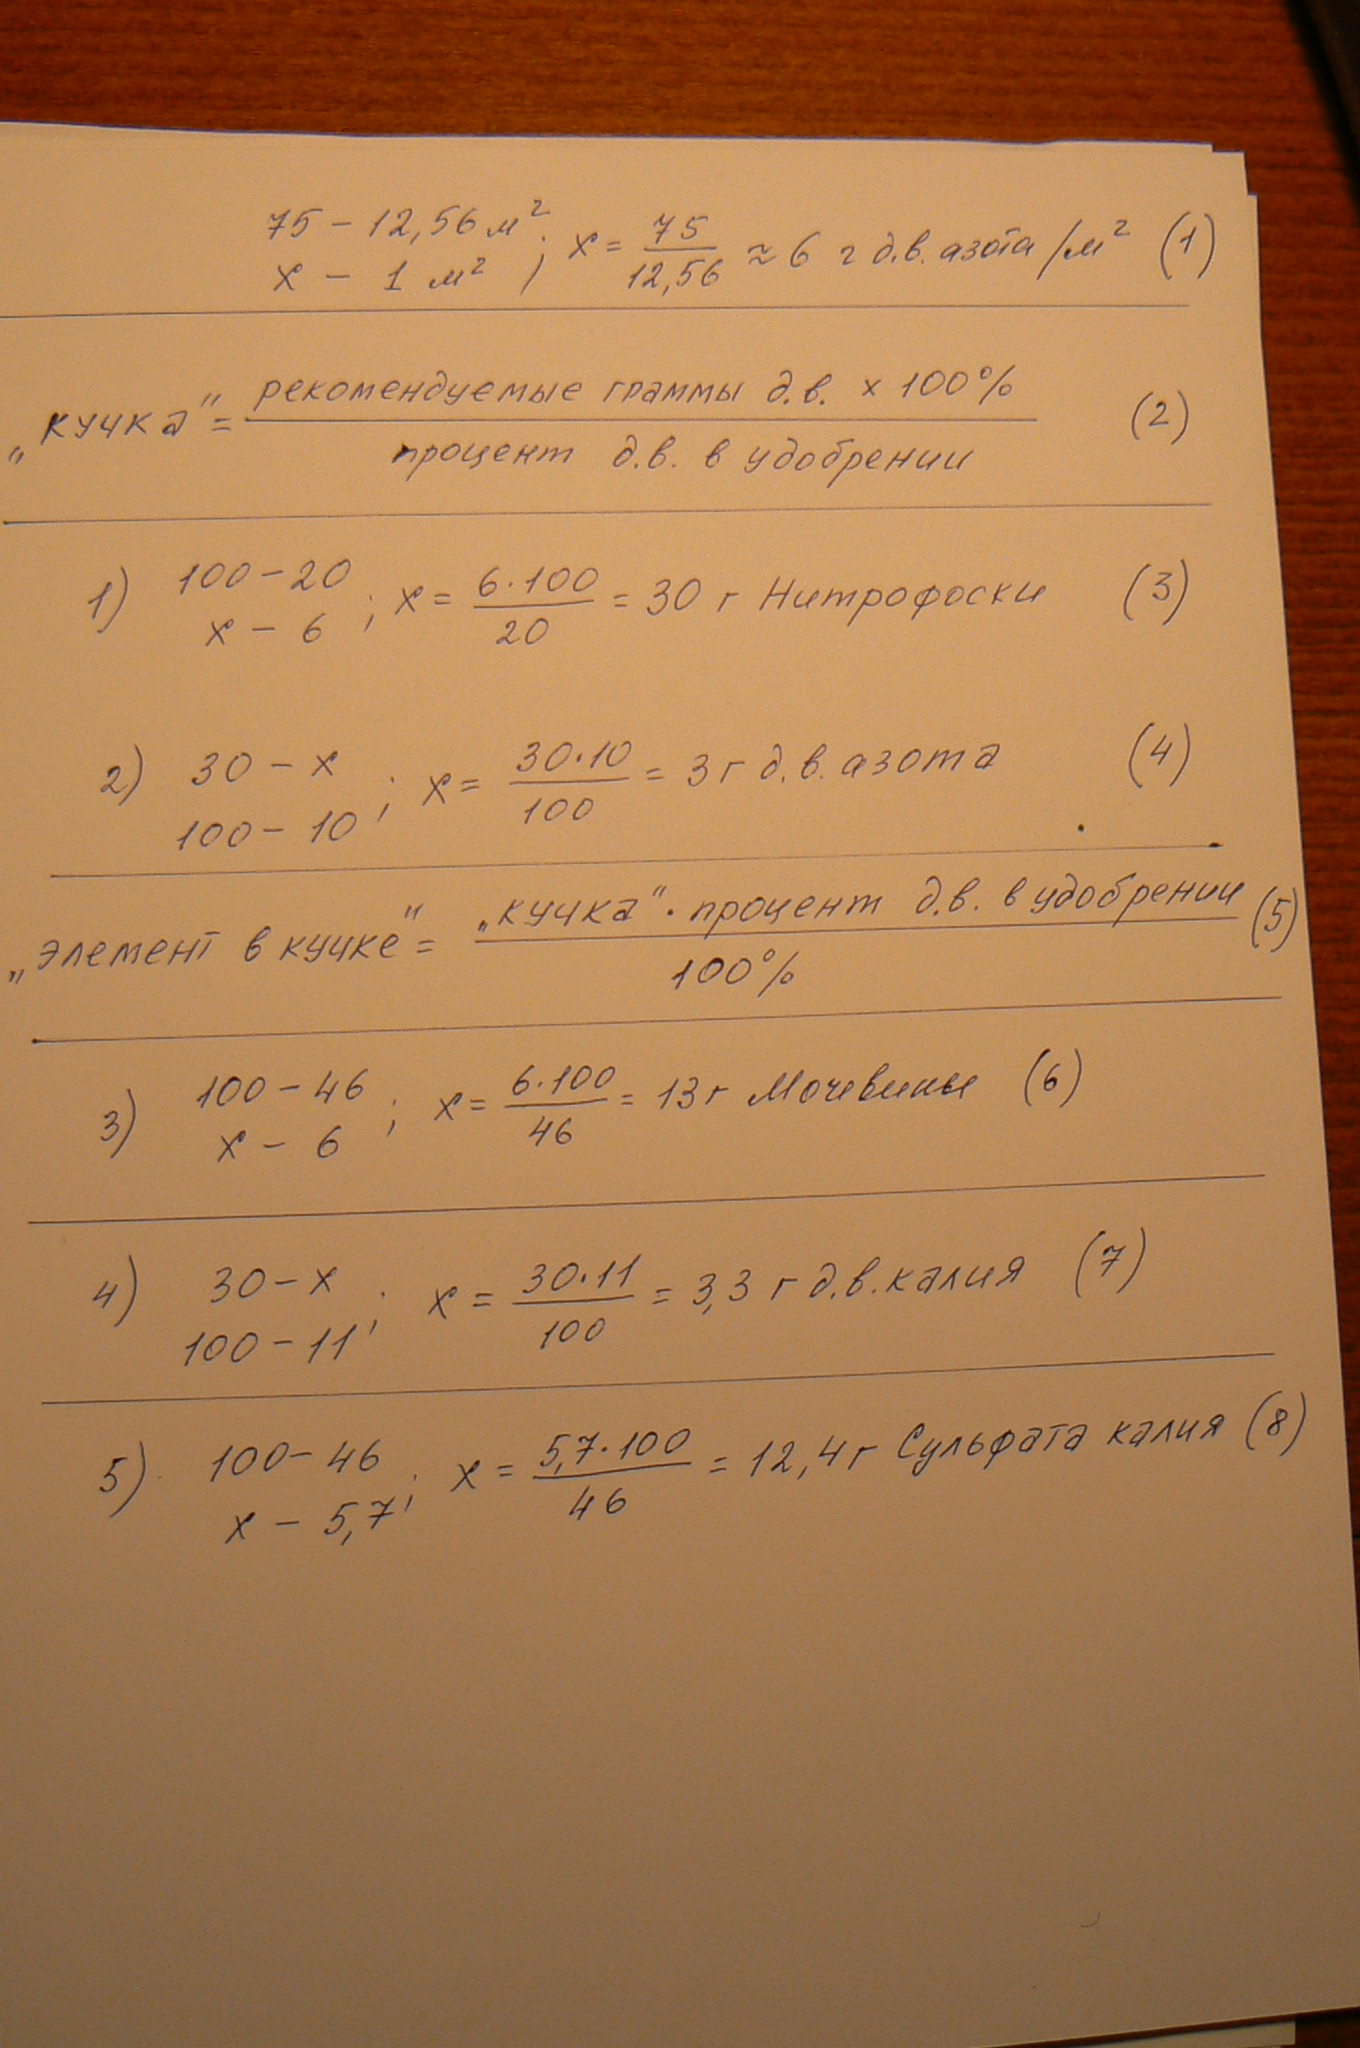 75 – 12,56 м² ; x = 75/12,56 ≈ 6 г д.в. азота/м² (1)
x – 1 м²
„кучка" = рекомендуемые граммы д.в. x 100% (2)
процент д.в. в удобрении
1) 100 – 20 ; x = 6·100/20 = 30 г Нитрофоски (3)
x – 6
2) 30 – x ; x = 30·10/100 = 3 г д.в. азота (4)
100 – 10
„элемент в кучке" = „кучка"· процент д.в. в удобрении (5)
100%
3) 100 – 46 ; x = 6·100/46 = 13 г Мочевины (6)
x – 6
4) 30 – x ; x = 30·11/100 = 3,3 г д.в. калия (7)
100 – 11
5) 100 – 46 ; x = 5,7·100/46 = 12,4 г Сульфата калия (8)
x – 5,7